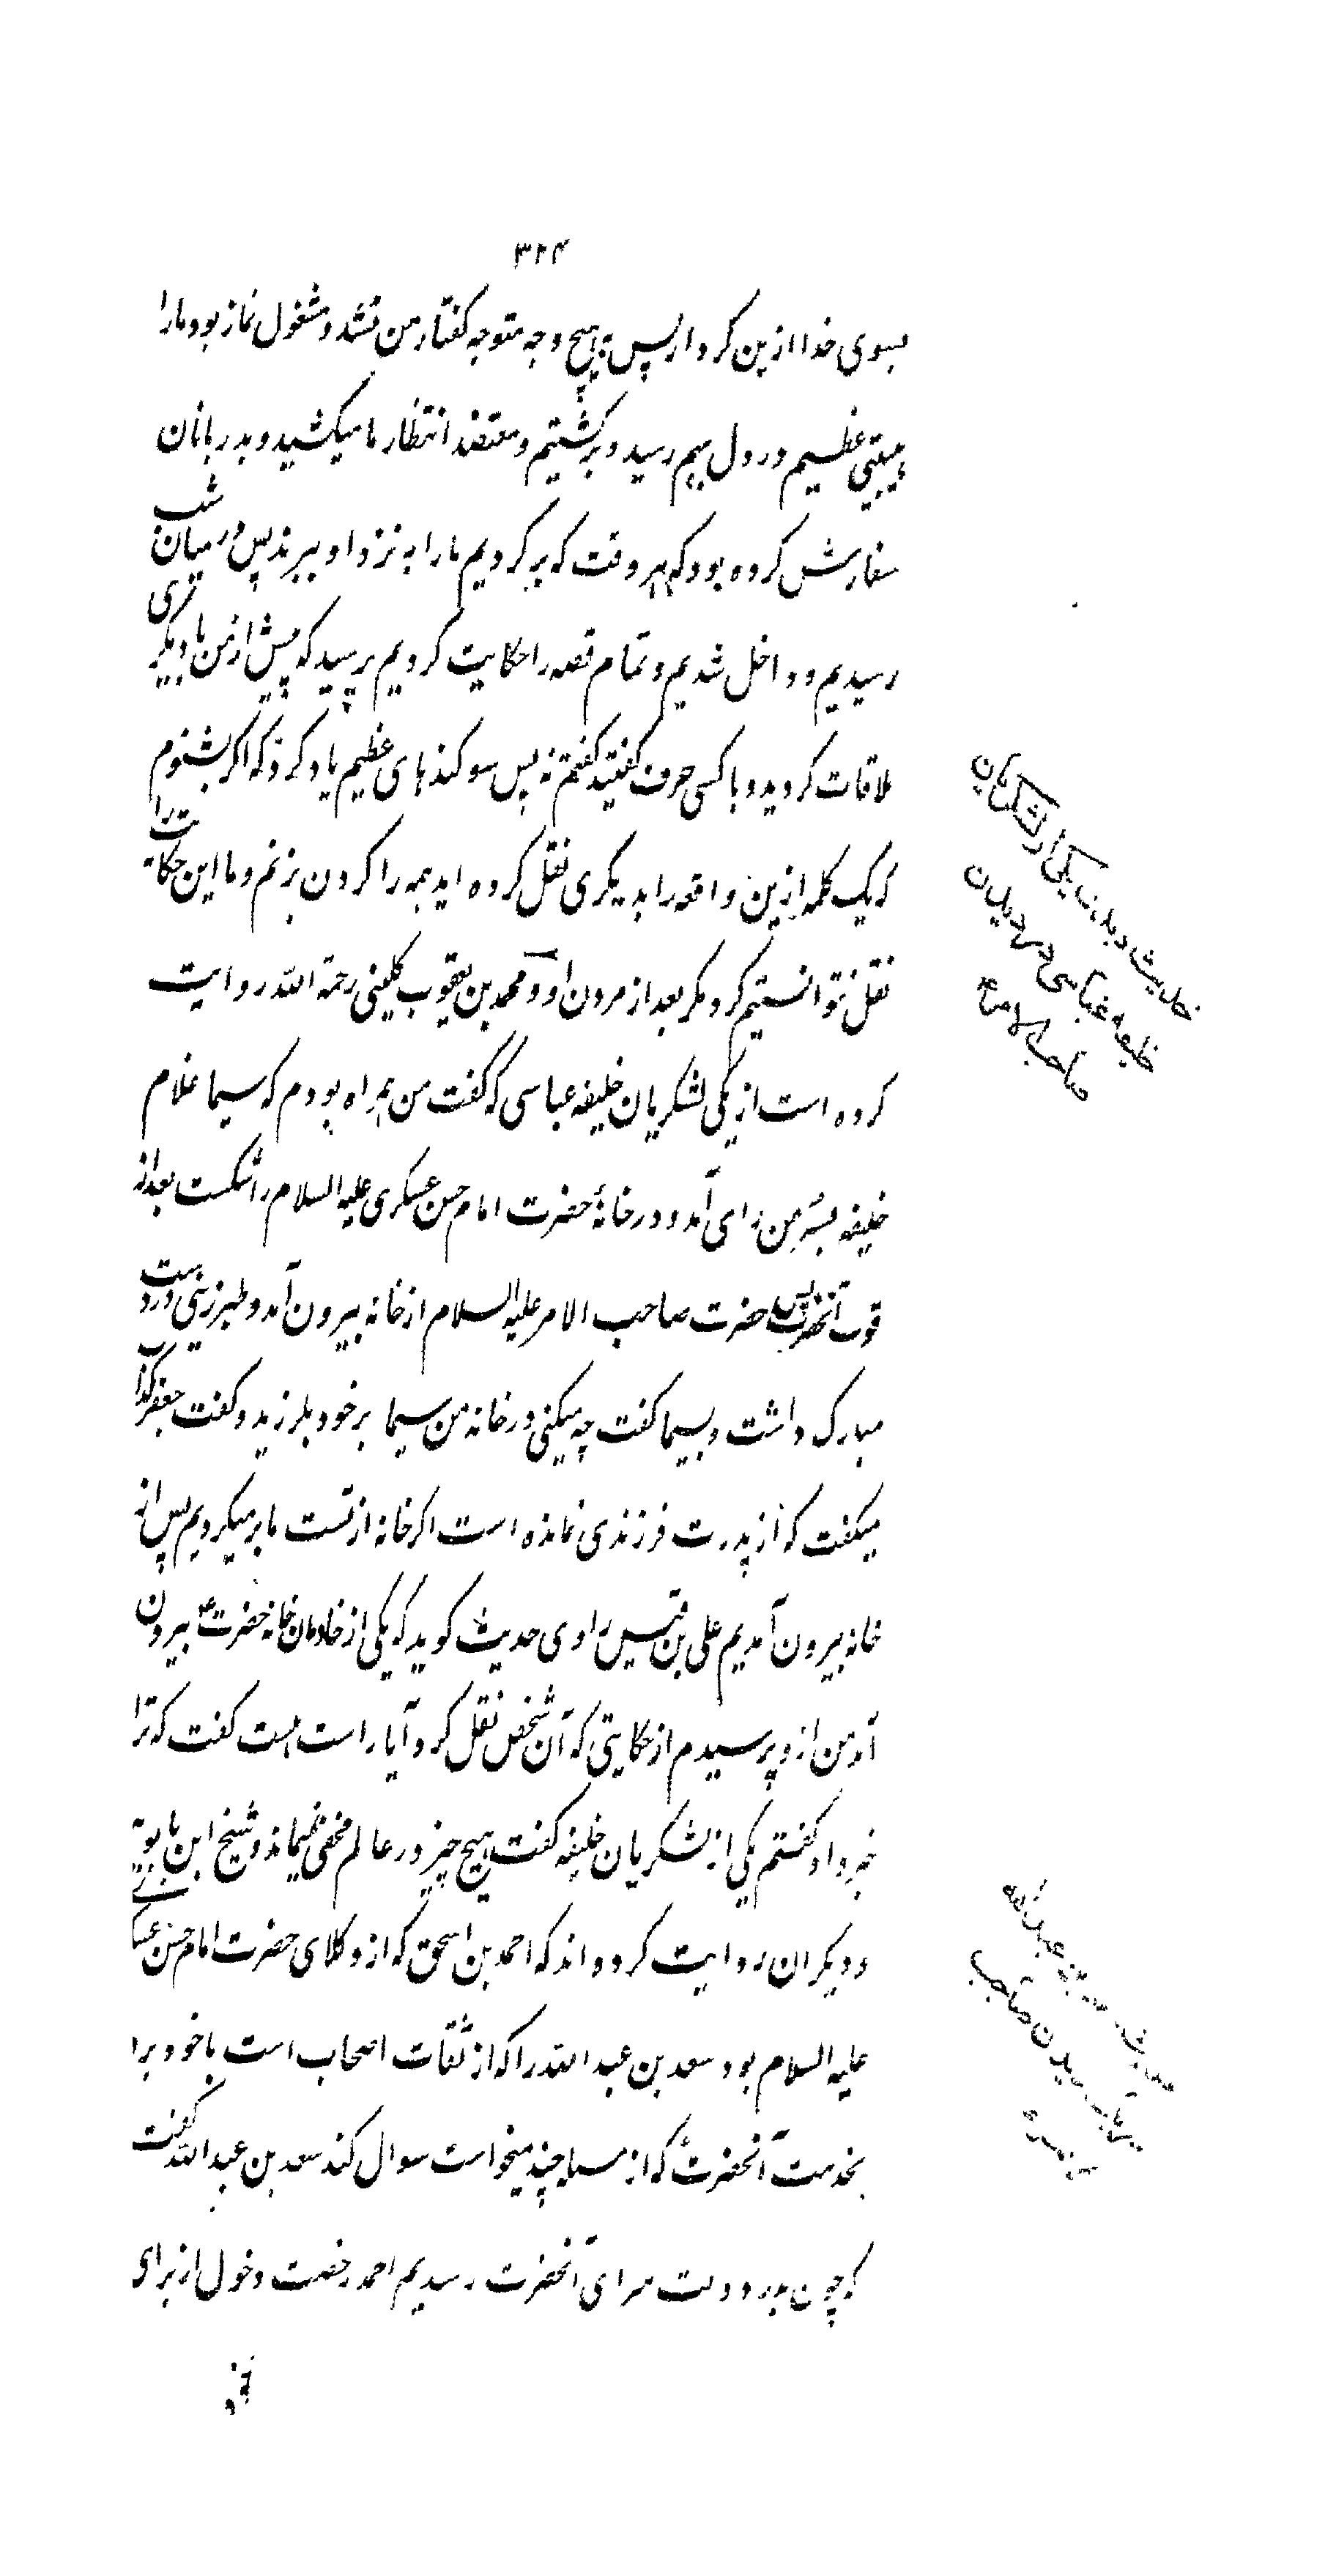 ۳۲۴
بسوی خدا ازین کردار پس بهیچ وجه متوجه گفتار من نشد و مشغول نماز بود مارا
هیبتی عظیم در دل بهم رسید و برگشتیم و معتضد انتظار ما میکشید و بدربانان
سفارش کرده بود که هر وقت که برگردیم مارا به نزد او ببرند پس در میان شب
رسیدیم و داخل شدیم و تمام قصه را حکایت کردیم پرسید که پیش از من با دیگری
ملاقات کردید و با کسی حرف گفتید گفتم نه پس سوگندهای عظیم یاد کرد که اگر بشنوم
که یک کلمه ازین واقعه را بدیگری نقل کرده اید همه را گردن بزنم و ما این حکایت را
نقل نتوانستیم کرد مگر بعد از مردن او و محمد بن یعقوب کلینی رحمة الله روایت
کرده است از یکی لشکریان خلیفه عباسی که گفت من همراه بودم که سیما غلام
خلیفه بسر من رای آمد و در خانۀ حضرت امام حسن عسکری علیه السلام را شکست بعد از
فوت آنحضرت پس حضرت صاحب الامر علیه السلام از خانه بیرون آمد و طبرزینی در دست
مبارک داشت و بسیما گفت چه میکنی در خانه من سیما بر خود بلرزید و گفت جعفر کذاب
میگفت که از پدرت فرزندی نمانده است اگر خانه از تست ما بر میگردیم پس از
خانه بیرون آمدیم علی بن قیس راوی حدیث گوید که یکی از خادمان خانه حضرت ع بیرون
آمد من از و پرسیدم از حکایتی که آن شخص نقل کرد آیا راست هست گفت که ترا
خبر داد گفتم یکی از لشکریان خلیفه گفت هیچ چیز در عالم مخفی نمیماند و شیخ ابن بابویه
و دیگران روایت کرده اند که احمد بن اسحق که از وکلای حضرت امام حسن عسکری
علیه السلام بود سعد بن عبد الله را که از ثقات اصحاب است با خود برد
بخدمت آنحضرت که از مسایل چند میخواست سوال کند سعد بن عبد الله گفت
که چون بدر دولت سرای آنحضرت رسیدیم احمد رخصت دخول از برای
خود
حدیث دیدن یکی از لشکریان
خلیفه عباسی در دیدن
صاحب الامر ع
حدیث سعد بن عبد الله